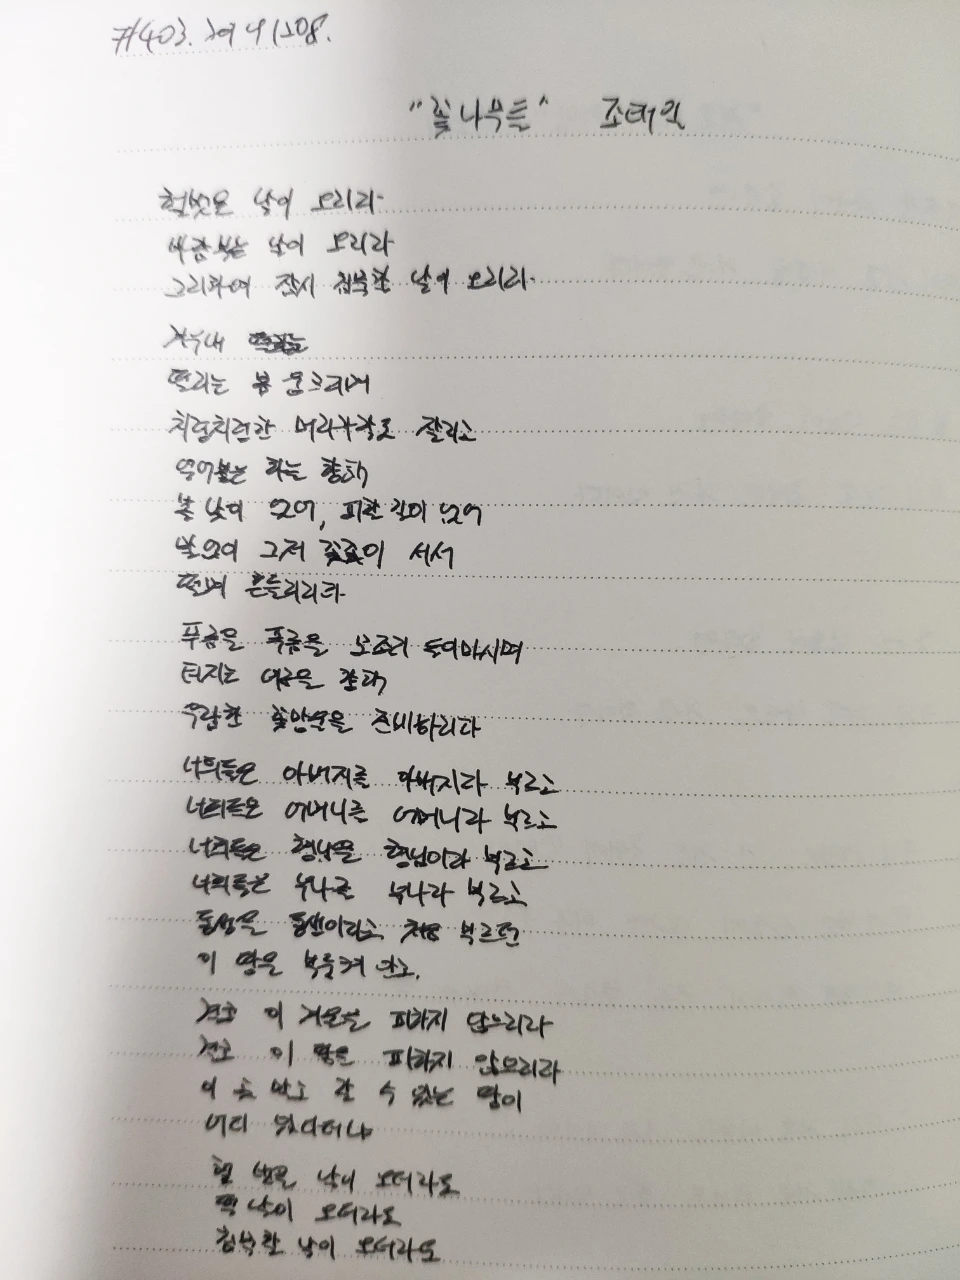 "꽃나무들" 조태일
헐벗은 날이 오리라
바람부는 날이 오리라
그리하여 잠시 침묵할 날이 오리라
겨우내
떨리는 몸 웅크리며
치렁치렁한 머리카락도 잘리고
얼어붙는 하늘 향해
볼 낯이 없어, 피할 길이 없어
말없이 그저 꽃꽂이 서서
떨며 흔들리리라
푸름을 푸름을 모조리 들이마시며
터지는 여름을 향해
우람한 꽃망울을 준비하리라
너희들은 아버지를 아버지라 부르고
너희들은 어머니를 어머니라 부르고
너희들은 형님을 형님이라 부르고
너희들은 누나를 누나라 부르고
동생을 동생이라고 처음 부르던
이 땅을 부둥켜 안고.
결코 이 겨울을 피하지 않으리라
결코 이 땅을 피하지 않으리라
이 곳 말고 갈 수 있는 땅이
어디 있다더냐
헐 벗을 날이 오더라도
떨 날이 오더라도
침묵할 날이 오더라도